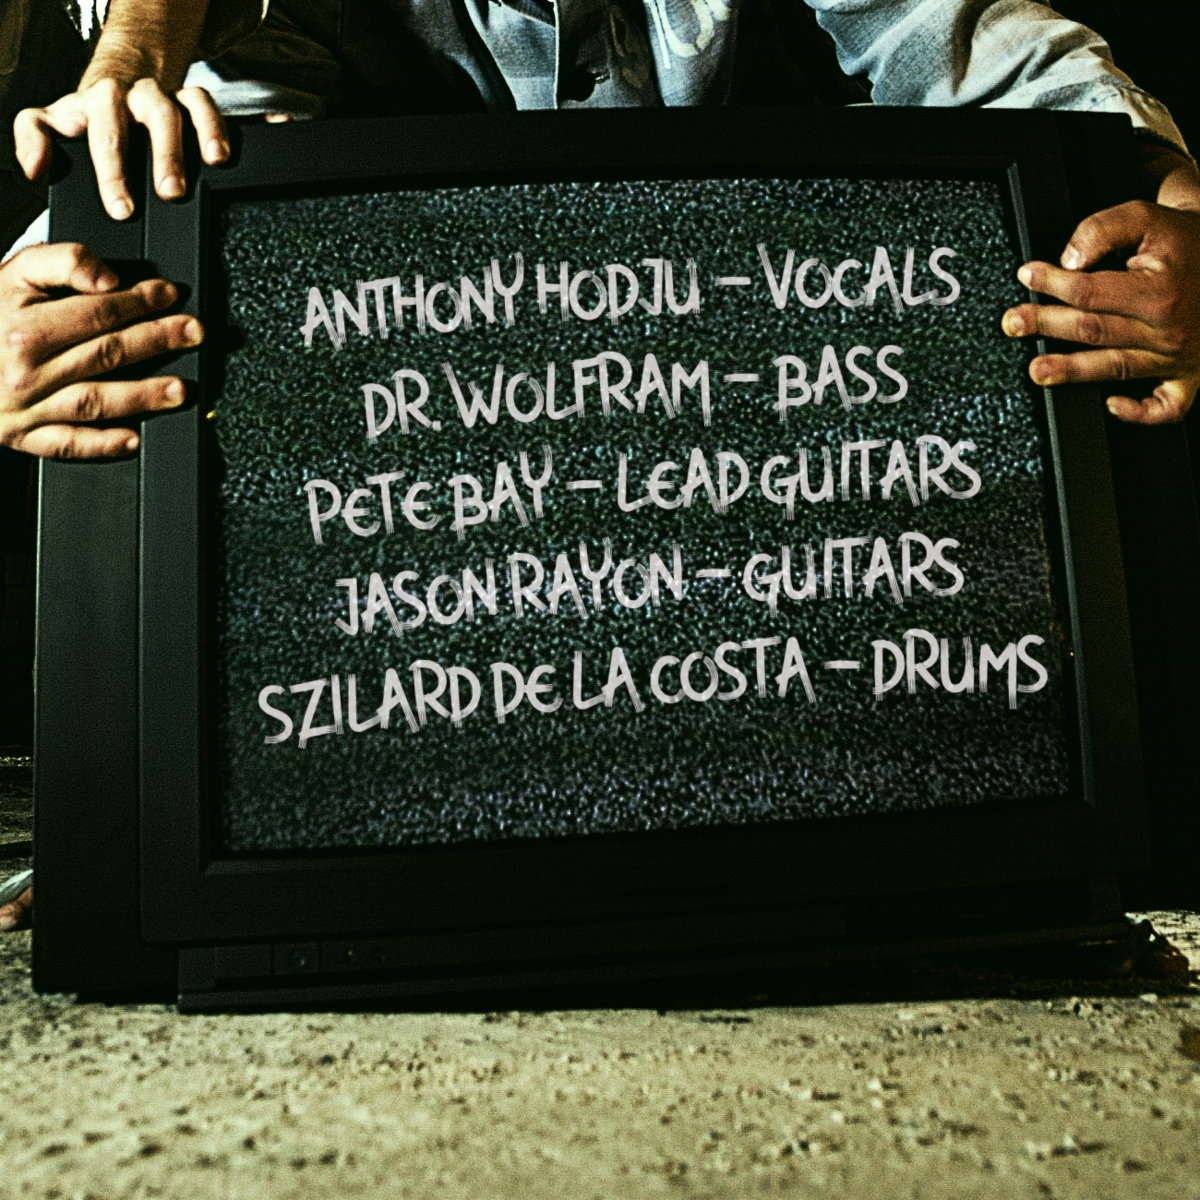 ANTHONY HODJU – VOCALS
DR. WOLFRAM – BASS
PETE BAY – LEAD GUITARS
JASON RAYON – GUITARS
SZILARD DE LA COSTA – DRUMS